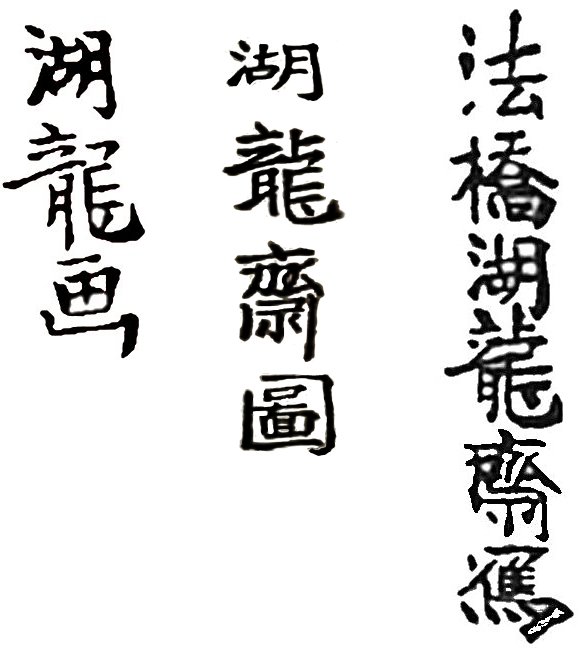 法橋湖龍齋
湖龍齋圖
湖龍画